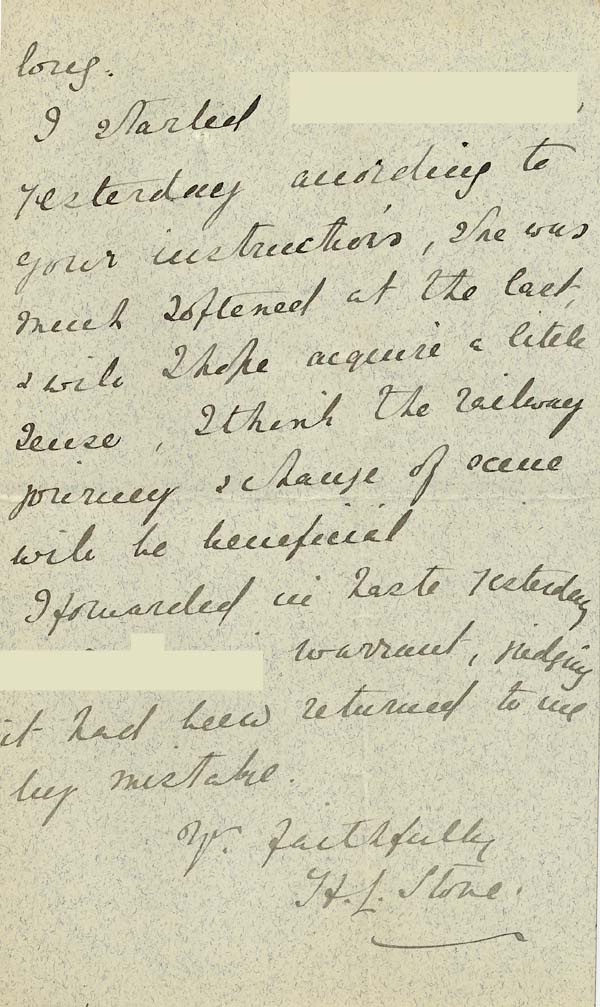 long.
I started ,
yesterday according to
your instructions, She was
much softened at the last,
& will I hope acquire a little
sense, I think the railway
journey & change of scene
will be beneficial
I forwarded in haste yesterday
warrant, judging
it had been returned to me
by mistake.
Yr. faithfully
H. L. Stone.